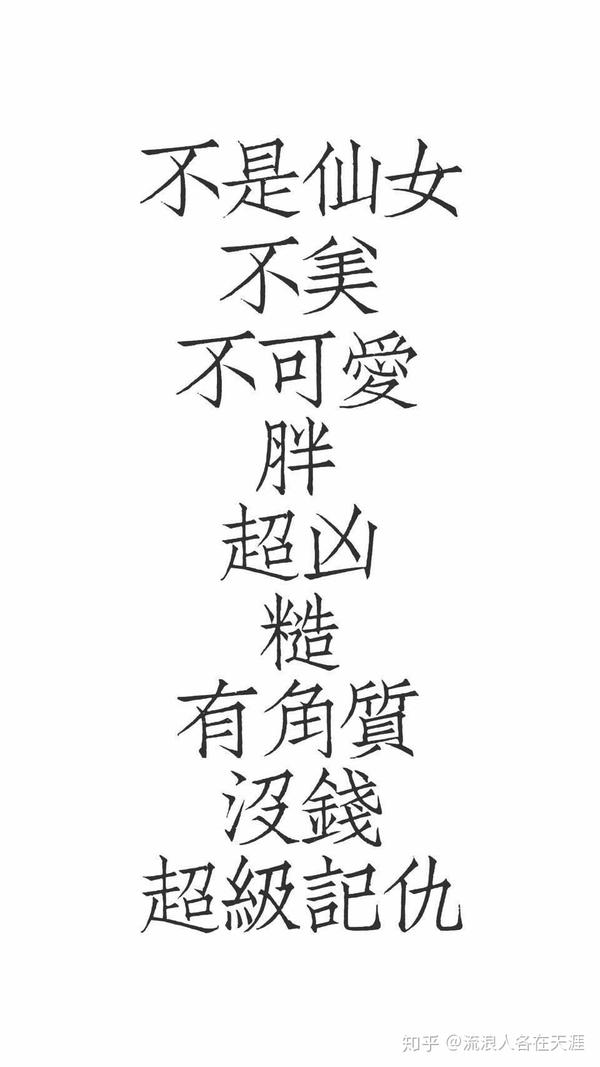 不是仙女
不美
不可愛
胖
超凶
糙
有角質
沒錢
超級記仇
知乎 @流浪人各在天涯